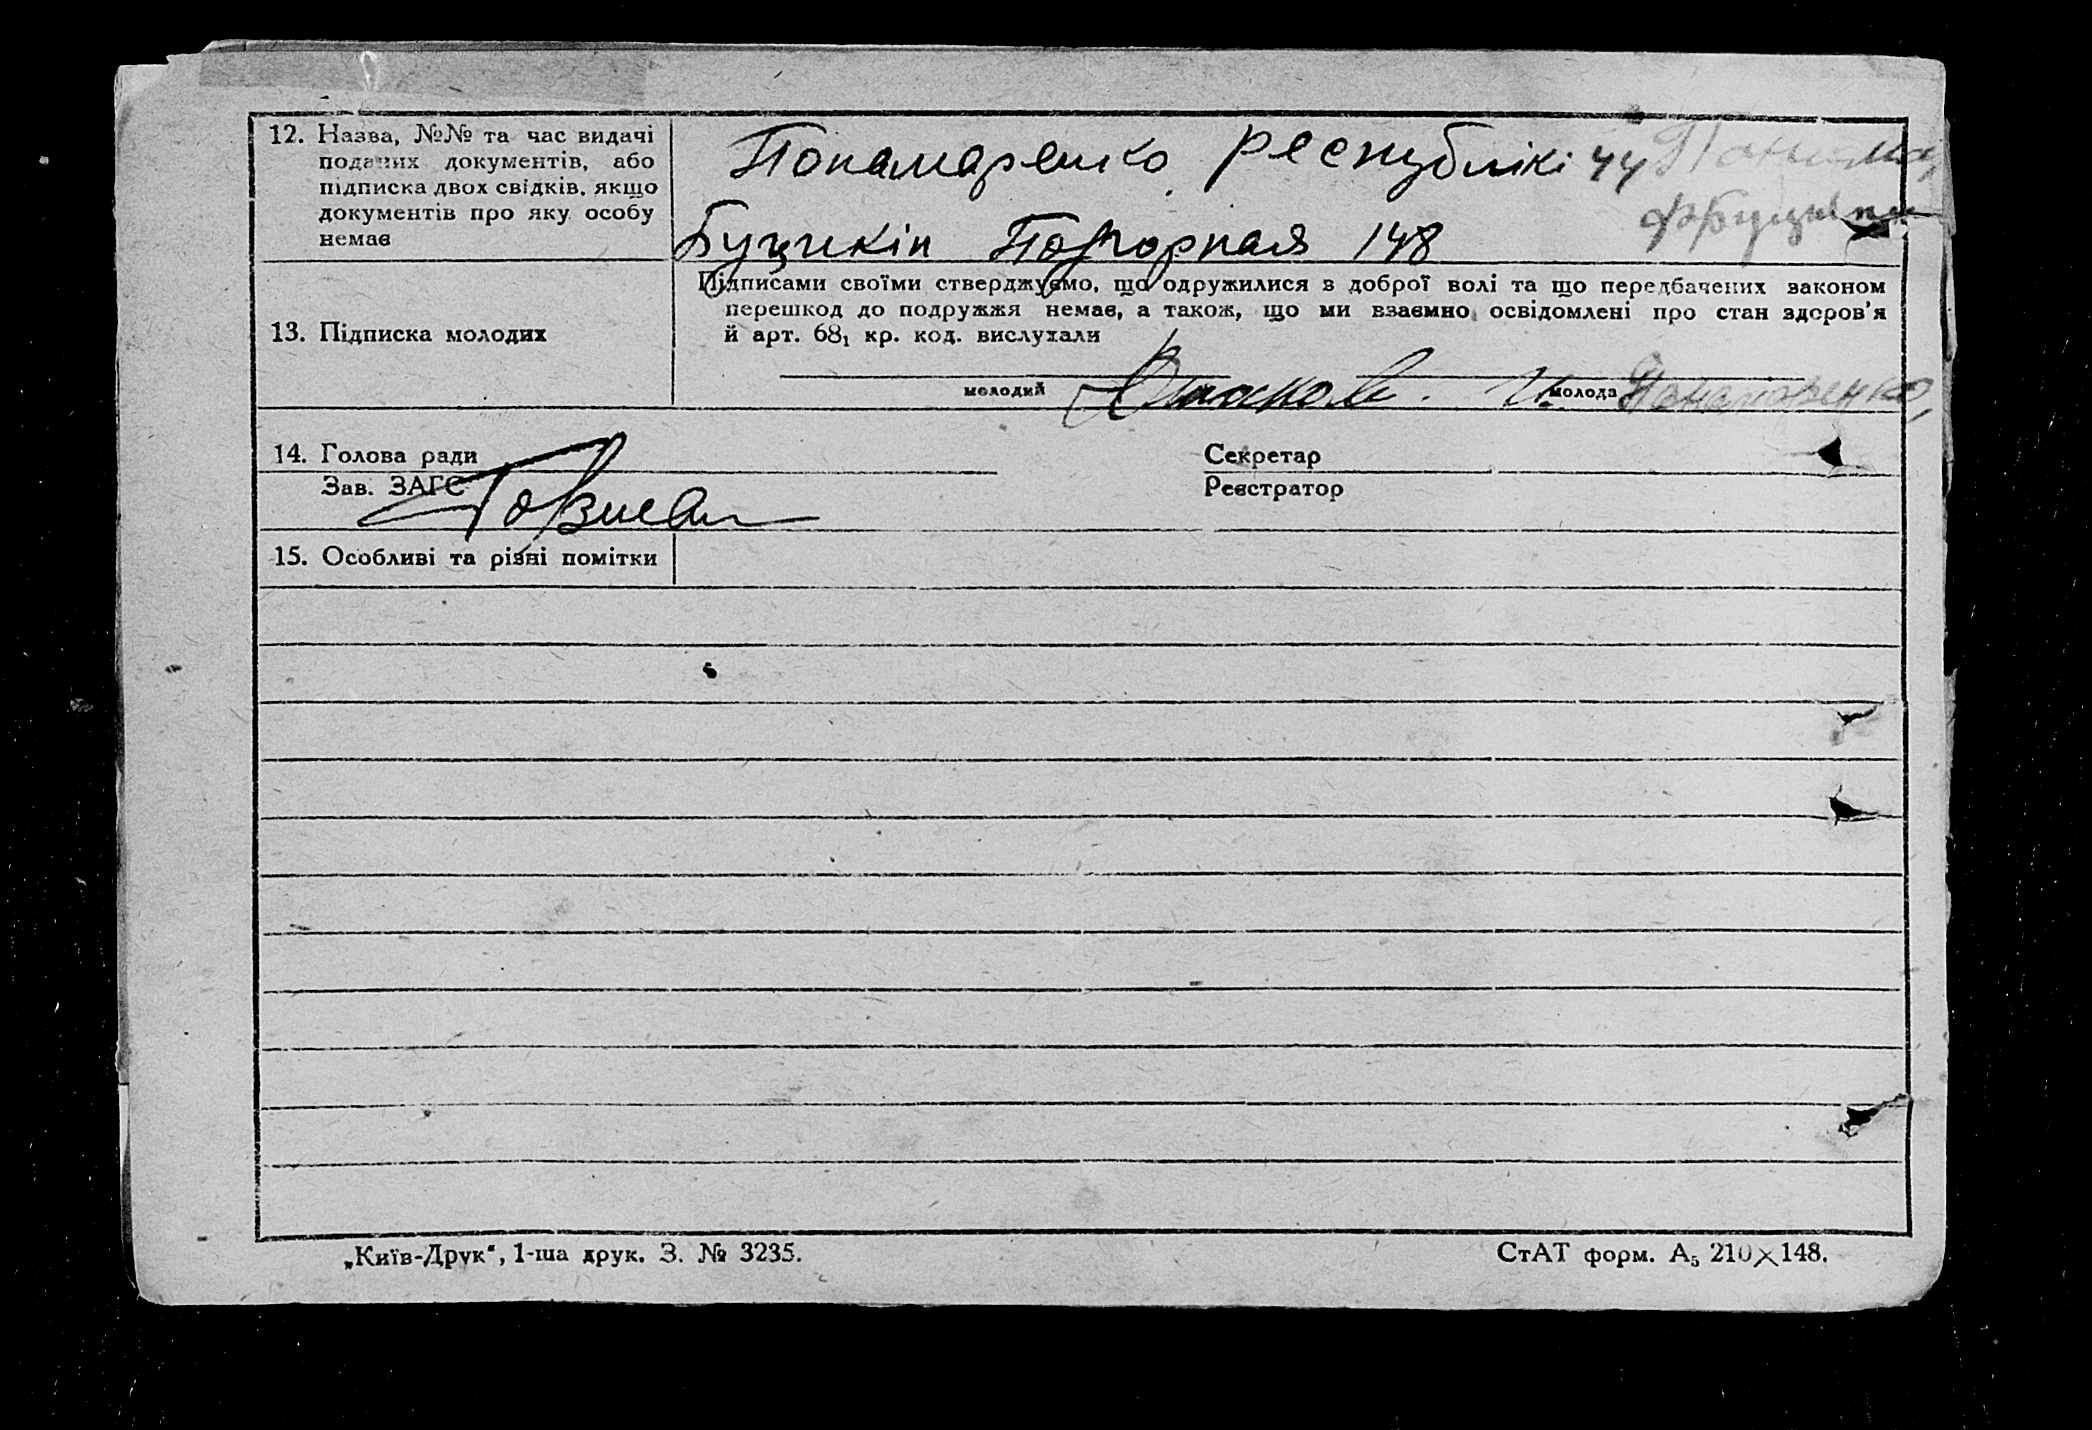 12. Назва, №№ та час видачі
поданих документів, або
підписка двох свідків, якщо
документів про яку особу
немає
Понамаренко республікі 44
Буцикін Подгорная 148
13. Підписка молодих
Підписами своїми стверджуємо, що одружилися з доброї волі та що передбачених законом
перешкод до подружжя немає, а також, що ми взаємно освідомлені про стан здоров'я
й арт. 68₁ кр. код. вислухали
молодий
молода Понамаренко
14. Голова ради
Секретар
Зав. ЗАГС
Реєстратор
15. Особливі та різні помітки
„Київ-Друк“, 1-ша друк. З. № 3235.
СтАТ форм. А₅ 210×148.